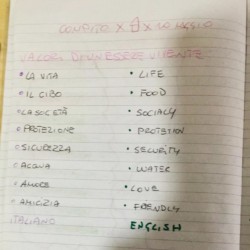 VALORI D'ESSERE VIVENTE
LA VITA
LIFE
IL CIBO
FOOD
LA SOCIETÀ
SOCIALY
PROTEZIONE
PROTETION
SICUREZZA
SECURITY
ACQUA
WATER
AMORE
LOVE
AMICIZIA
FRIENDLY
ITALIANO
ENGLISH